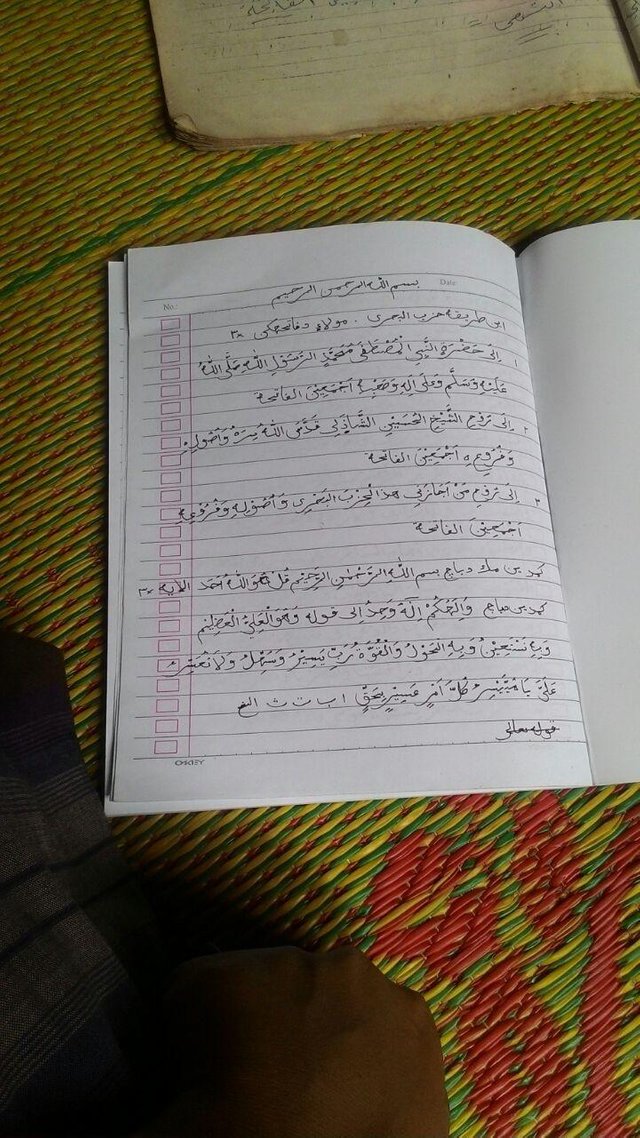 التى
بسم الله الرحمن الرحيم
No.:
Date:
اين طريقه حزب البحرى . مولاءِ دفاتحهكن ×٣
١ إِلَى حَضْرَةِ النَّبِيِّ الْمُصْطَفَى مُحَمَّدٍ الرَّسُوْلِ اللّٰهِ صَلَّى اللّٰهُ
عَلَيْهِ وَسَلَّم وَعَلَى اٰلِهِ وَصَحْبِهِ اَجْمَعِيْنَ الفاتحة
٢ إِلَى رُوْحِ الشَّيْخِ الْحُسَيْنِ الشَّاذِلِي قَدَّسَ اللّٰهُ سِرَّهُ وَاُصُوْلِهِ
وَفُرُوْعِهِ اَجْمَعِيْنَ الفاتحة
٣ إِلَى رُوْحِ مَنْ اَجَازَنِي هذا لْحِزْبَ الْبَحْرِى وَاُصُوْلِهِ وَفُرُوْعِهِ
اَجْمَعِيْنَ الفاتحة
كمدين مك دباچ بسم اللّٰهِ الرَّحْمٰنِ الرَّحِيْمِ قُلْ هُوَاللّٰهُ اَحَد الاية ×٣
كمدين دباچ وَاِلٰهُكُمْ اِلٰهٌ وَحِدٌ الى قوله وَهُوَالْعَلِيُّ الْعَظِيْمُ
وَبِهِ نَسْتَعِيْنُ وَبِهِ الْحَوْلُ وَالْقُوَّةُ رَبِّ يَسِّرْ وَسَهِّلْ وَلَا تُعَسِّرْ
عَلَيَّ يَا مُيَسِّرُ كُلِّ اَمْرٍ عَسِيْرٍ بِحَقِّ ا ب ت ث الخ
قوله تعالى
OKEY